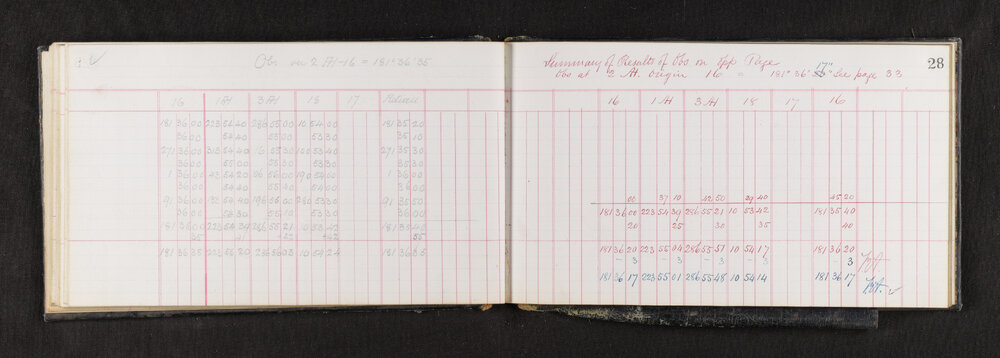 Obs on 2 AH - 16 = 181° 36' 35
16 1 AH 3 AH 18 17 Retired
181 36 00 223 54 40 286 55 00 10 54 00 181 35 20
36 00 54 40 55 00 53 30 35 10
271 36 00 313 54 40 16 55 30 100 53 40 271 35 30
36 00 55 00 55 30 53 30 35 30
1 36 00 43 54 20 96 56 00 190 54 00 1 36 00
36 00 54 40 55 40 54 00 36 00
91 36 00 54 40 196 55 00 280 53 30 91 35 50
36 00 55 10 53 30 36 00
181 36 00 223 54 39 286 55 21 10 53 42 181 35 40
35 41 42 42 55
181 36 35 223 55 20 286 56 03 10 54 24 181 36 35
Summary of Results of Obs on Opp Page 28
17"
Obs at 2 AH. Origin 16 = 181° 36' See page 33
16 1 AH 3 AH 18 17 16
00 37 10 42 50 39 40 45 20
181 36 00 223 54 39 286 55 21 10 53 42 181 35 40
20 25 30 35 40
181 36 20 223 55 04 286 55 51 10 54 17 181 36 20
- 3 - 3 - 3 - 3 - 3
181 36 17 223 55 01 286 55 48 10 54 14 181 36 17